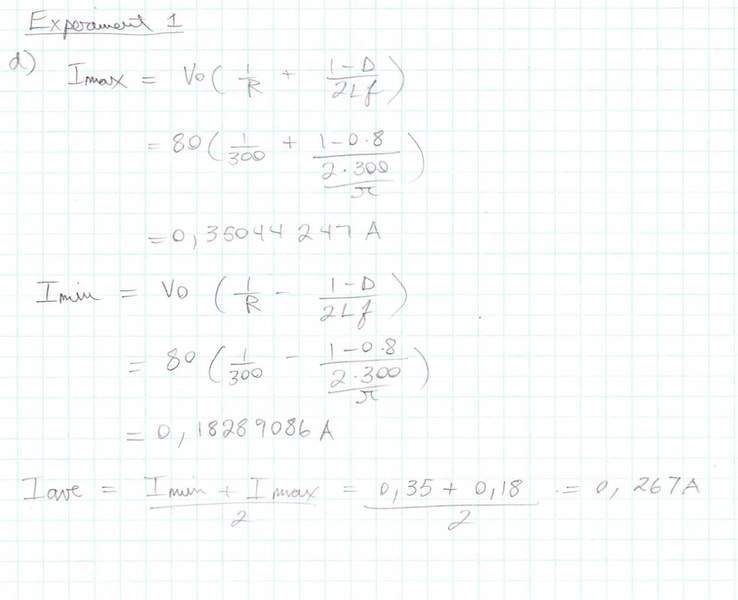 Experiment 1
d) Imax = Vo ( 1/R + (1-D)/(2Lf) )
= 80 ( 1/300 + (1-0.8)/((2·300)/π) )
= 0,35044247 A
Imin = Vo ( 1/R - (1-D)/(2Lf) )
= 80 ( 1/300 - (1-0.8)/((2·300)/π) )
= 0,18289086 A
Iave = (Imin + Imax)/2 = (0,35 + 0,18)/2 = 0,267A